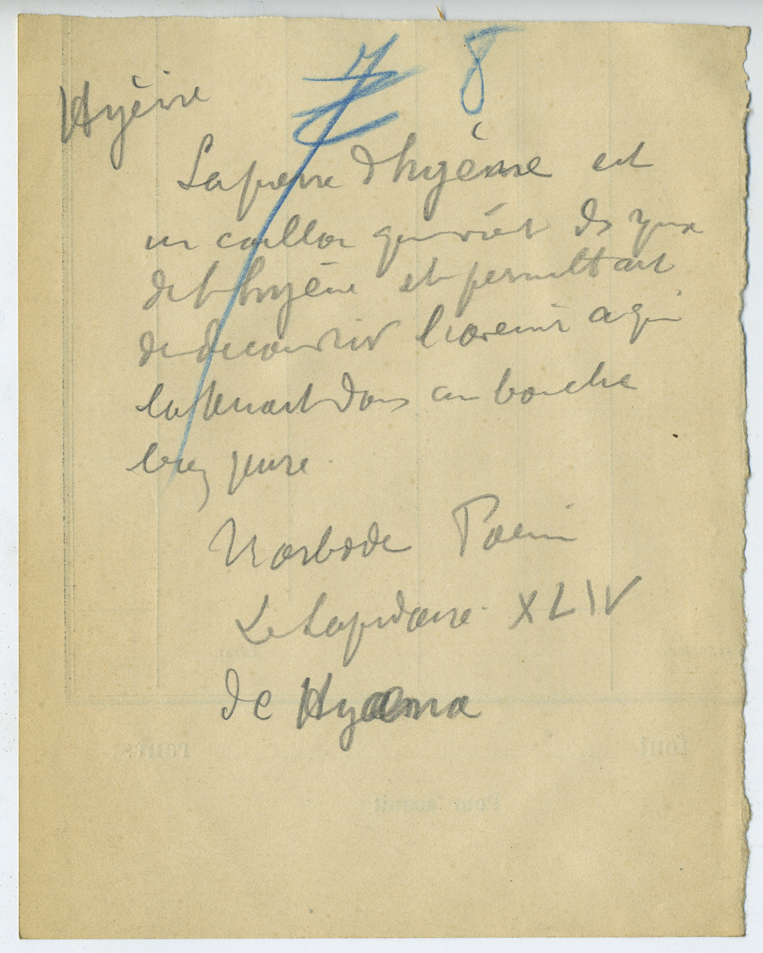 8
Hyène
La pierre d'hyène est
un caillou qui vient des yeux
de l'hyène et permettait
de découvrir l'avenir a qui
la tenait dans sa bouche
bien pure.
Marbode Poem
Le Lapidaire XLIV
de Hyaena